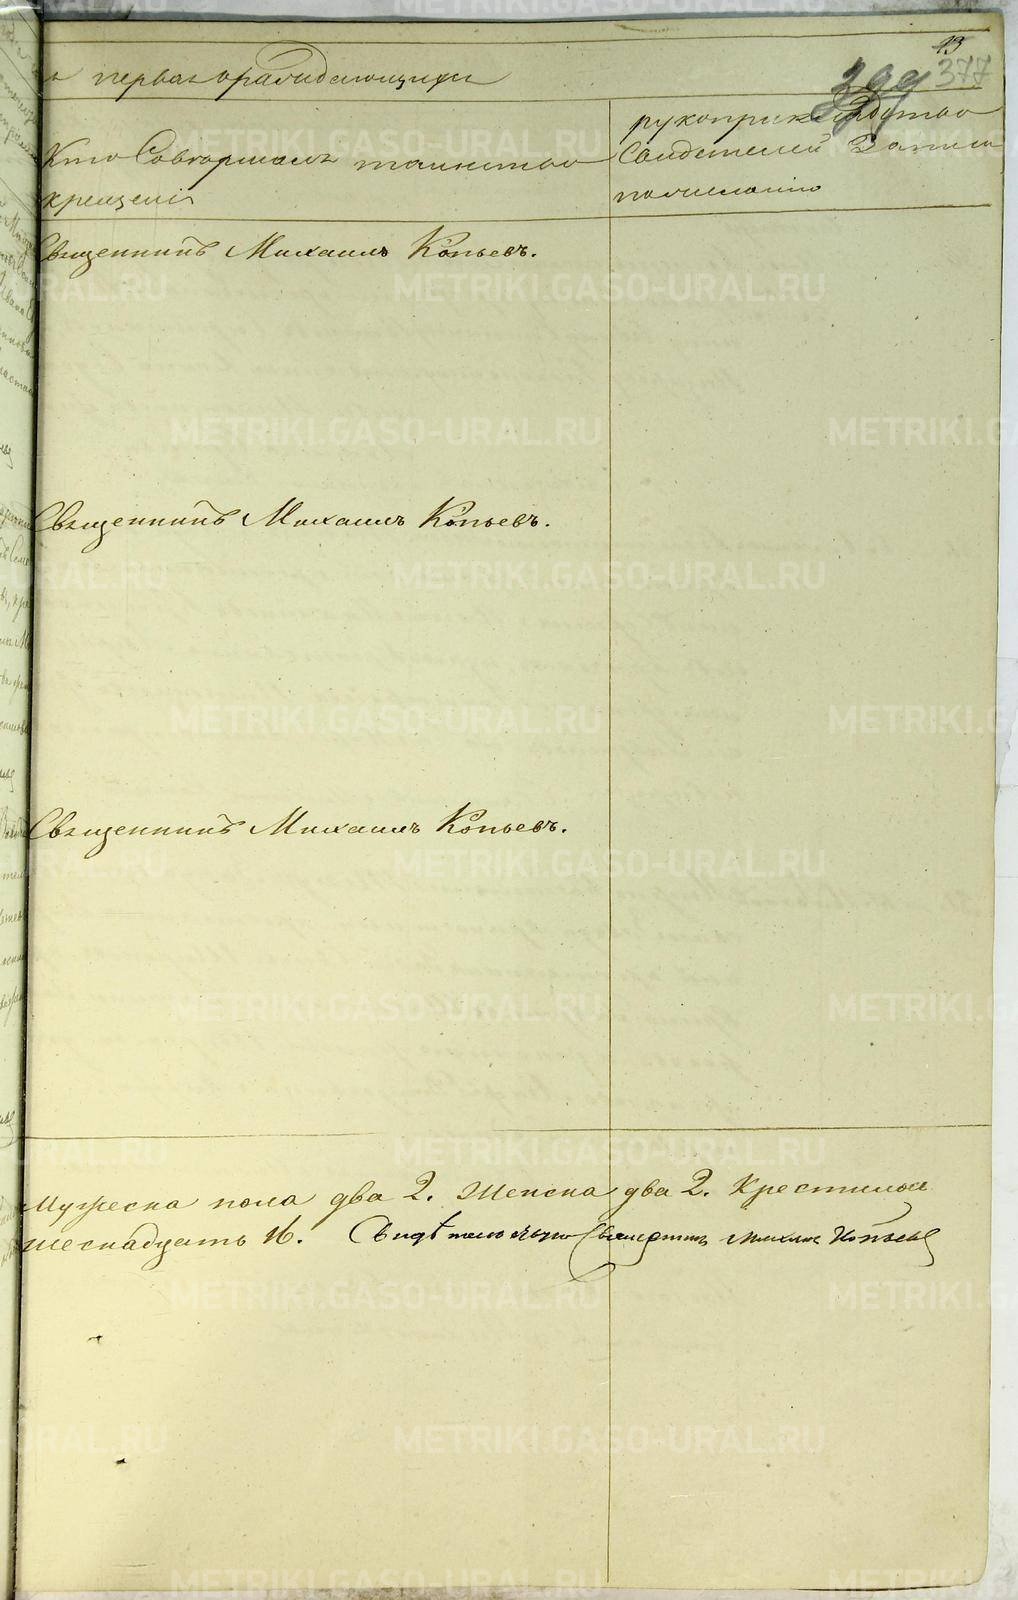 13
377
первая о раждающихся
Кто Совершалъ таинство
крещенія
рукоприкладство
Свидѣтелей Записи
по желанію
Священникъ Михаилъ Копьевъ.
Священникъ Михаилъ Копьевъ.
Священникъ Михаилъ Копьевъ.
Мужеска пола два 2. Женска два 2. Крестилъ
шеснадцать 16. Свидѣтельствую Священникъ Михаилъ Копьевъ
METRIKI.GASO-URAL.RU